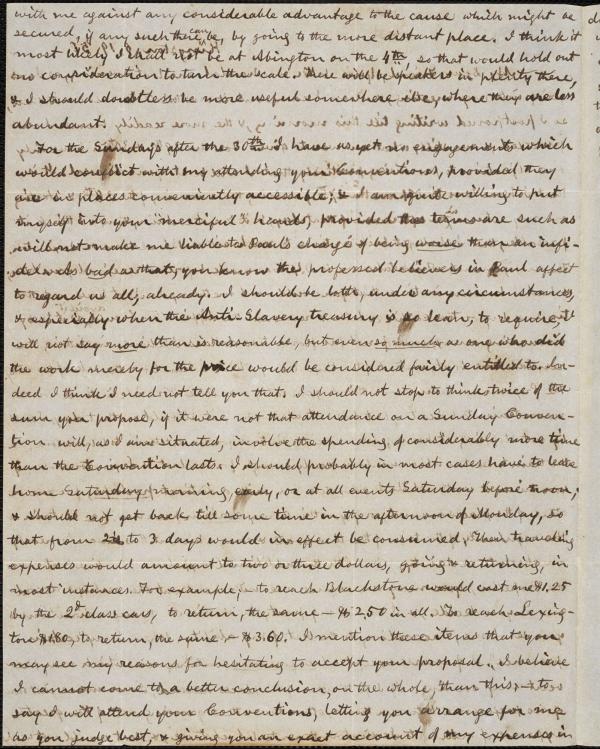 with me against any considerable advantage to the cause which might be
secured, if any such there may be, by going to the more distant place. I think it
most likely I shall not be at Abington on the 4th, so that would hold out
no consideration to turn the scale. There will be speakers in plenty there,
& I should doubtless be more useful somewhere else, where they are less
abundant.
For the Sundays after the 30th I have as yet no engagements which
would conflict with my attending your Conventions, provided they
are in places conveniently accessible; & I am quite willing to put
myself into your merciful hands, provided the terms are such as
will not make me liable to Paul's charge of being worse than an infi-
del. As bad as that, you know the professed believers in Paul affect
to regard us all, already. I should be loth, under any circumstances,
& especially when the Anti-Slavery treasury is so lean, to require, I
will not say more than is reasonable, but even so much as one who did
the work merely for the price would be considered fairly entitled to. In-
deed I think I need not tell you that. I should not stop to think twice of the
sum you propose, if it were not that attendance on a Sunday Conven-
tion will, as I am situated, involve the spending of considerably more time
than the Convention lasts. I should probably in most cases have to leave
home Saturday morning, early, or at all events Saturday before noon,
& should not get back till some time in the afternoon of Monday, so
that from 2½ to 3 days would in effect be consumed. Then traveling
expenses would amount to two or three dollars, going & returning, in
most instances. For example, – to reach Blackstone would cost me $1.25
by the 2d class cars, to return, the same – $2,50 in all. To reach Lexing-
ton $1.80, to return, the same, – $3.60. I mention these items that you
may see my reasons for hesitating to accept your proposal. I believe
I cannot come to a better conclusion, on the whole, than this; – to
say I will attend your Conventions, letting you arrange for me
as you judge best, & giving you an exact account of my expenses in